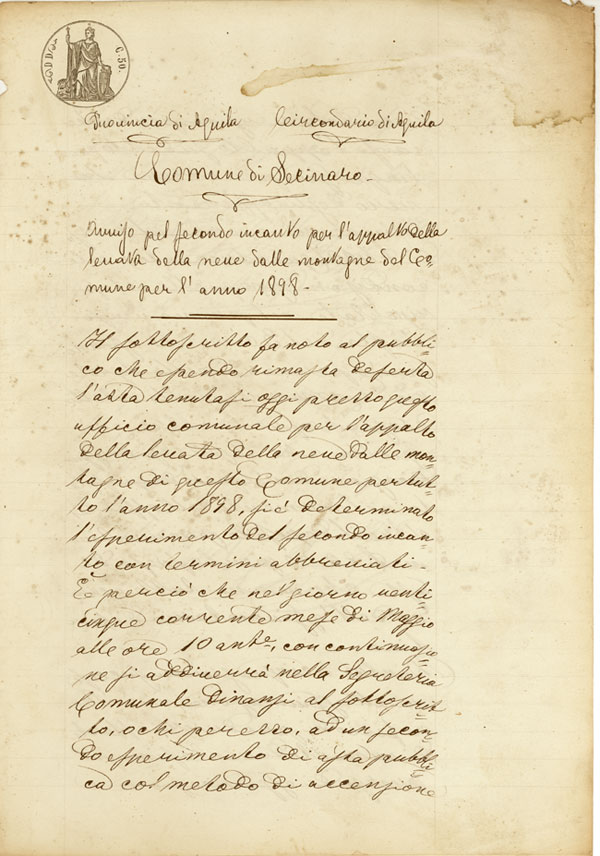 C. 50.
Provincia di Aquila Circondario di Aquila
Comune di Secinaro
Avviso pel secondo incanto per l'appalto della
levata della neve dalle montagne del Co=
mune per l'anno 1898-
Il sottoscritto fa noto al pubbli=
co che essendo rimasta deserta
l'asta tenutasi oggi presso questo
ufficio comunale per l'appalto
della levata della neve dalle mon=
tagne di questo Comune per tut=
to l'anno 1898, si è determinato
l'esperimento del secondo incan=
to con termini abbreviati-
È perciò che nel giorno venti
cinque corrente mese di Maggio
alle ore 10 ant.e, con continuazio=
ne si addiverrà nella Segreteria
Comunale dinanzi al sottoscrit=
to, o chi per esso, ad un secon=
do esperimento di asta pubbli=
ca col metodo di accensione